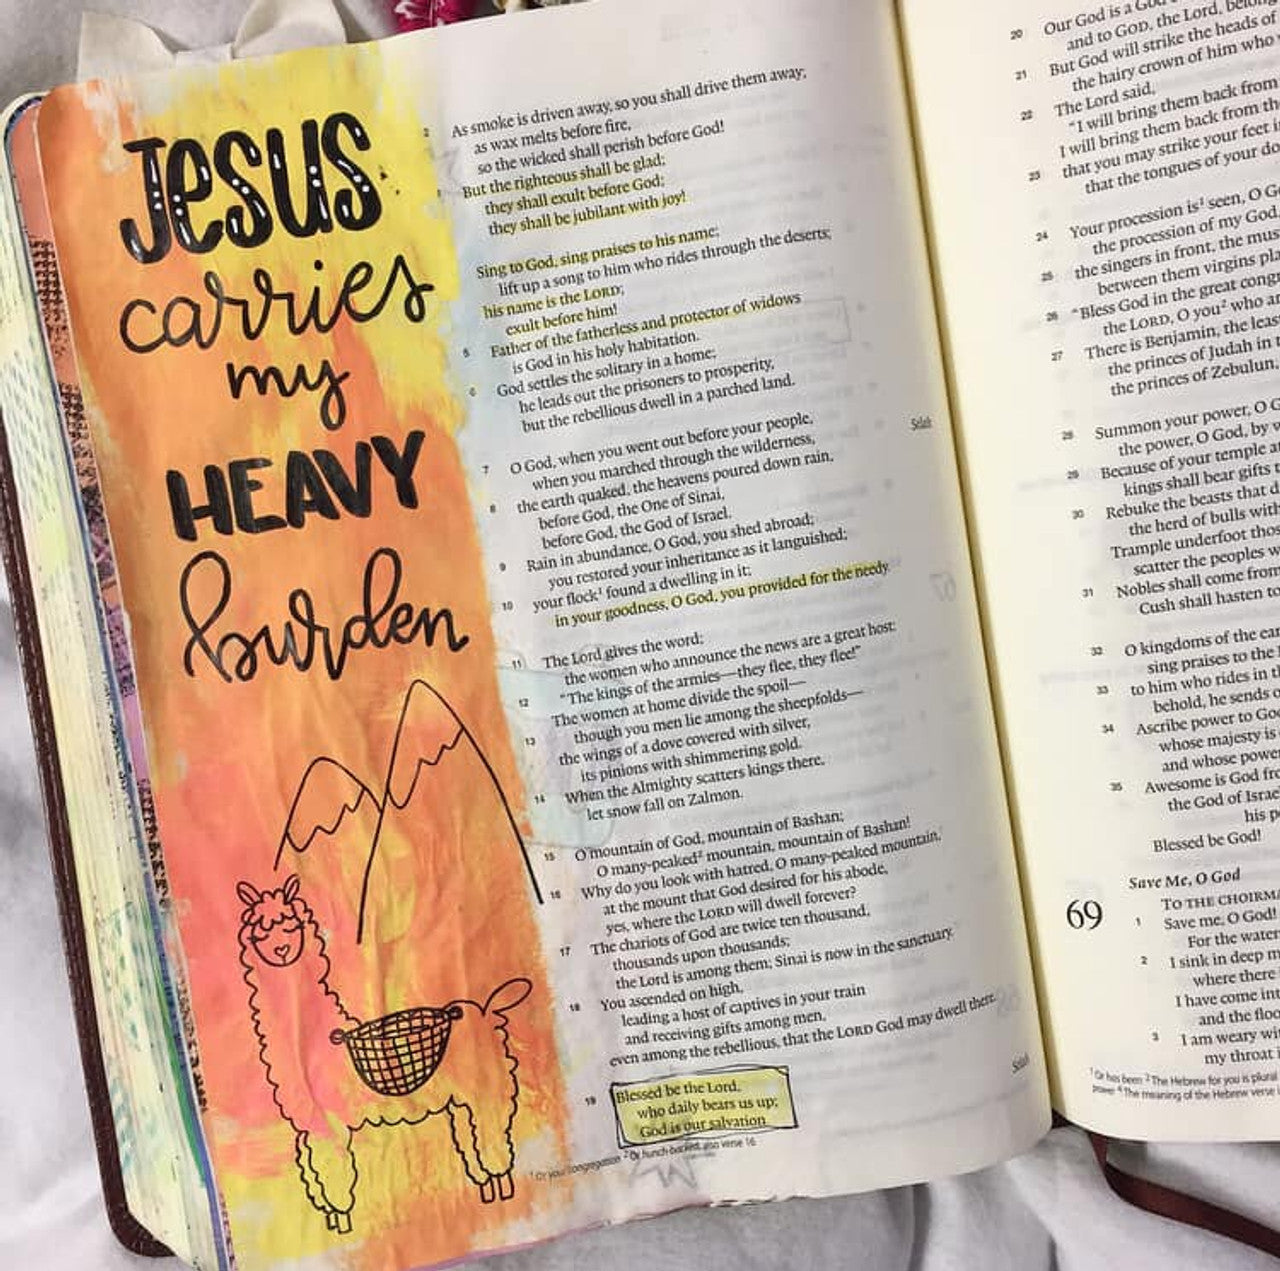 Jesus
carries
my
HEAVY
burden
2 As smoke is driven away, so you shall drive them away;
as wax melts before fire,
so the wicked shall perish before God!
But the righteous shall be glad;
they shall exult before God;
they shall be jubilant with joy!
Sing to God, sing praises to his name;
lift up a song to him who rides through the deserts;
his name is the LORD;
exult before him!
5 Father of the fatherless and protector of widows
is God in his holy habitation.
6 God settles the solitary in a home;
he leads out the prisoners to prosperity,
but the rebellious dwell in a parched land.
Selah
7 O God, when you went out before your people,
when you marched through the wilderness,
8 the earth quaked, the heavens poured down rain,
before God, the One of Sinai,
before God, the God of Israel.
9 Rain in abundance, O God, you shed abroad;
you restored your inheritance as it languished;
10 your flock¹ found a dwelling in it;
in your goodness, O God, you provided for the needy.
11 The Lord gives the word;
the women who announce the news are a great host:
12 “The kings of the armies—they flee, they flee!”
The women at home divide the spoil—
13 though you men lie among the sheepfolds—
the wings of a dove covered with silver,
its pinions with shimmering gold.
14 When the Almighty scatters kings there,
let snow fall on Zalmon.
15 O mountain of God, mountain of Bashan;
O many-peaked² mountain, mountain of Bashan!
16 Why do you look with hatred, O many-peaked mountain,
at the mount that God desired for his abode,
yes, where the LORD will dwell forever?
17 The chariots of God are twice ten thousand,
thousands upon thousands;
the Lord is among them; Sinai is now in the sanctuary.
18 You ascended on high,
leading a host of captives in your train
and receiving gifts among men,
even among the rebellious, that the LORD God may dwell there.
Selah
19 Blessed be the Lord,
who daily bears us up;
God is our salvation
¹ Or your congregation ² Or hunch-backed; also verse 16
20 Our God is a God
and to GOD, the Lord, belong
21 But God will strike the heads of
the hairy crown of him who
22 The Lord said,
“I will bring them back from
I will bring them back from
23 that you may strike your feet
that the tongues of your
24 Your procession is¹ seen, O
the procession of my God
25 the singers in front, the
between them virgins
26 “Bless God in the great
the LORD, O you² who
27 There is Benjamin, the
the princes of Judah in
the princes of Zebulun,
28 Summon your power, O
the power, O God, by
29 Because of your temple
kings shall bear gifts
30 Rebuke the beasts that
the herd of bulls with
Trample underfoot
scatter the peoples
31 Nobles shall come from
Cush shall hasten to
32 O kingdoms of the
sing praises to the
33 to him who rides in
behold, he sends
34 Ascribe power to
whose majesty is
and whose
35 Awesome is God
the God of
his
Blessed be God!
Save Me, O God
69
TO THE
1 Save me, O God!
For the
2 I sink in deep
where there
I have come
and the
3 I am weary
my throat
¹ Or has been ² The Hebrew for you is plural
⁴ The meaning of the Hebrew verse